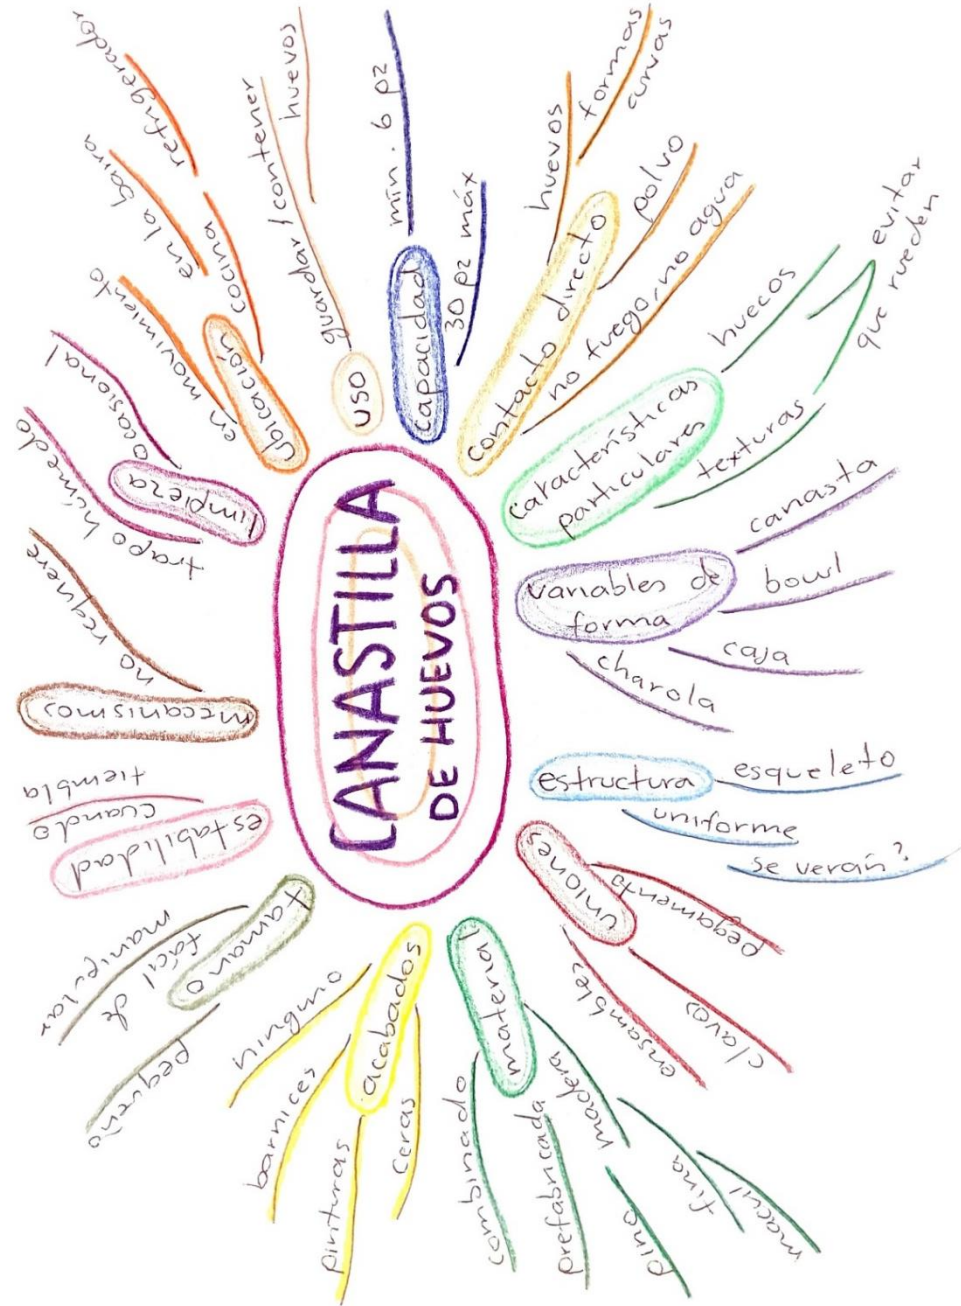 CANASTILLA
DE HUEVOS
uso
guardar/contener
huevos
capacidad
mín. 6 pz
30 pz máx
contacto directo
huevos
formas
curvas
polvo
no fuego, no agua
características
particulares
huecos
texturas
evitar
que rueden
variables de
forma
canasta
bowl
caja
charola
estructura
esqueleto
uniforme
se verán?
uniones
pegamento
clavos
ensambles
material
madera
fina
macuil
pino
prefabricada
combinado
acabados
ceras
pinturas
barnices
ninguno
tamaño
fácil de
manipular
pequeño
estabilidad
cuando
tiembla
mecanismos
no requiere
limpieza
ocasional
trapo húmedo
ubicación
en movimiento
cocina
en la barra
refrigerador